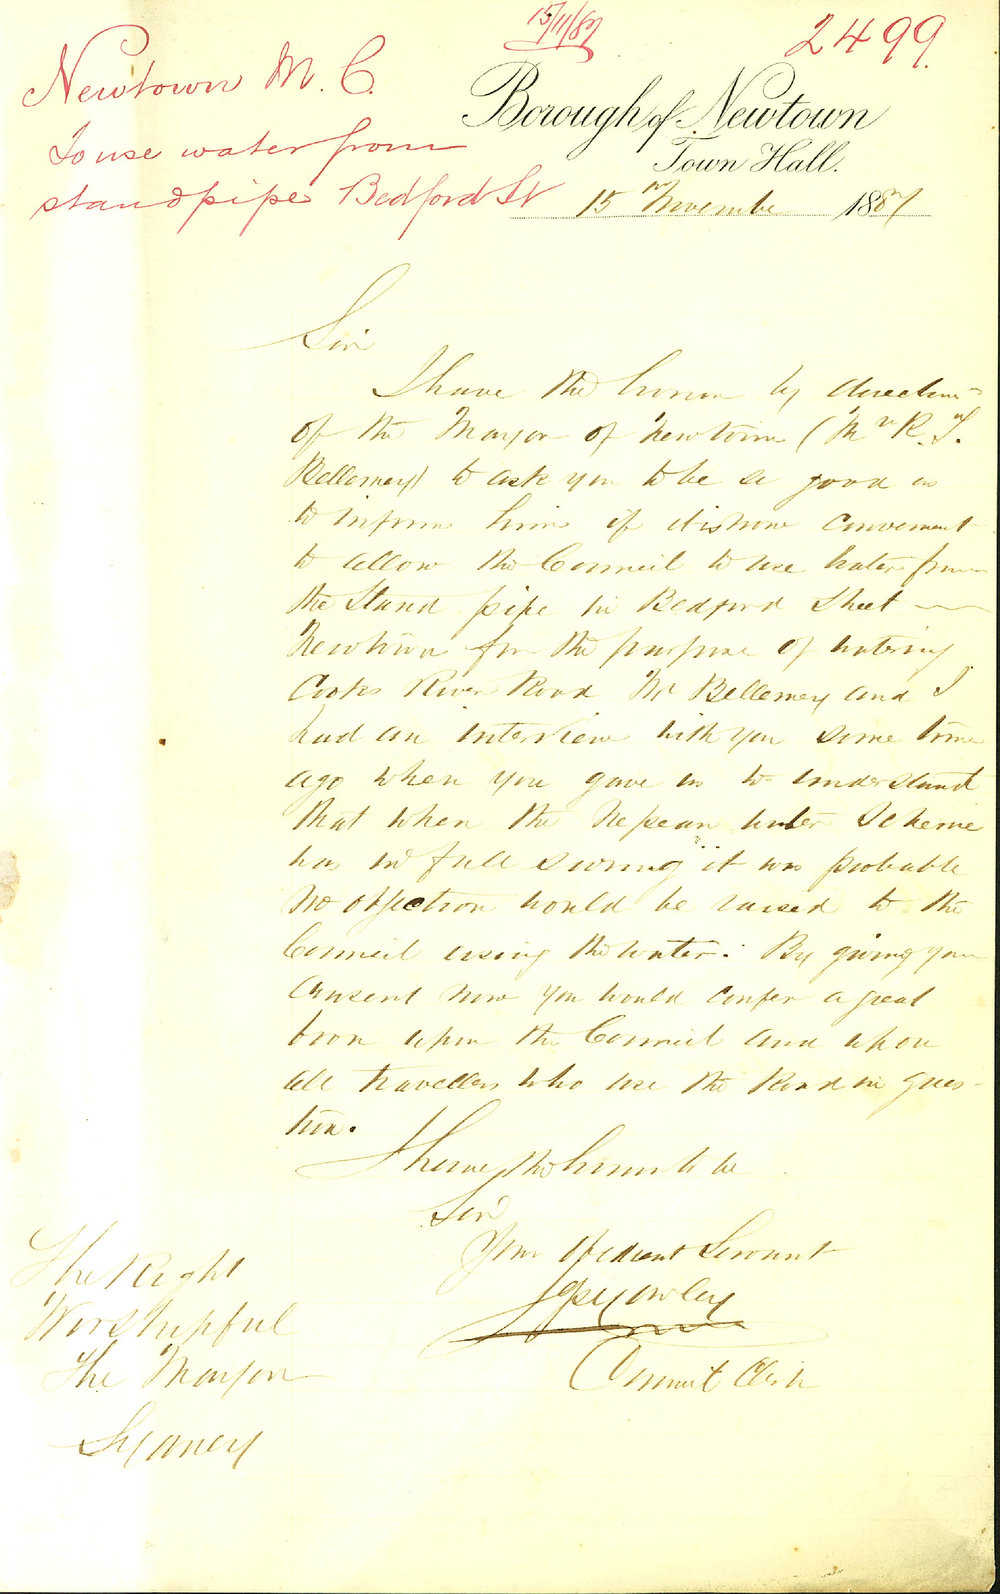 15/11/87
2499.
Newtown M. C.
To use water from
standpipe Bedford St
Borough of Newtown
Town Hall.
15th November 1887
Sir
I have the honor by direction
of the Mayor of Newtown (Mr R. T.
Bellemey) to ask you to be so good as
to inform him if it is now convenient
to allow the Council to use water from
the Stand pipe in Bedford Street
Newtown for the purpose of watering
Cooks River Road Mr Bellemey and I
had an interview with you some time
ago when you gave us to understand
that when the Nepean water Scheme
was in full swing it was probable
no objection would be raised to the
Council using the water. By giving your
consent now you would confer a great
boon upon the Council and upon
all travellers who use the Road in ques-
tion.
I have the honor to be
Sir
Your Obedient Servant
Council Clerk
The Right
Worshipful
The Mayor
Sydney